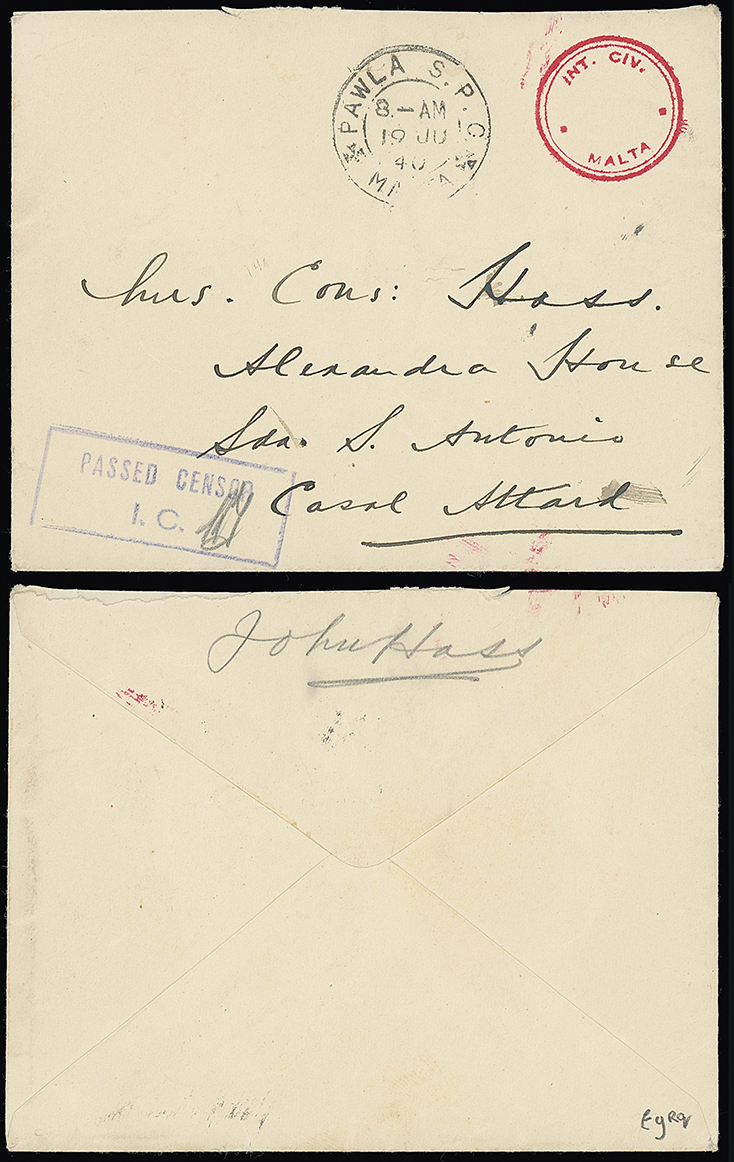 PAWLA S.P.C
8.-AM
19 JU
40
INT. CIV.
MALTA
Mrs. Cons: Hass.
Alexandra House
Sda. S. Antonio
Casal Attard
PASSED CENSOR
I.C.
John Hass